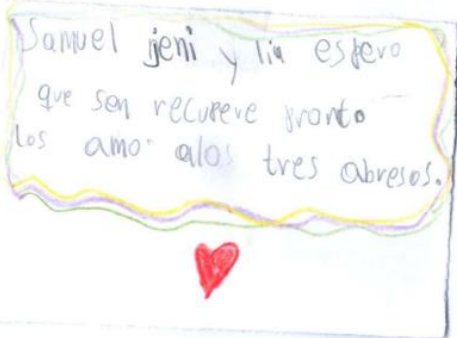 Samuel jeni y lia espero
que sen recupere pronto
los amo alos tres abresos.